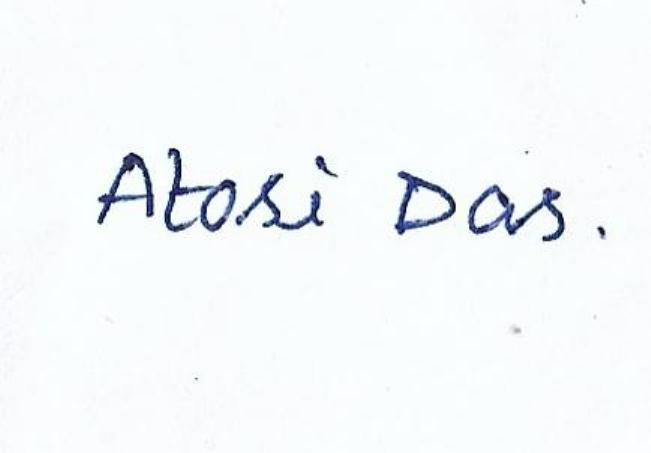 Atosi Das.